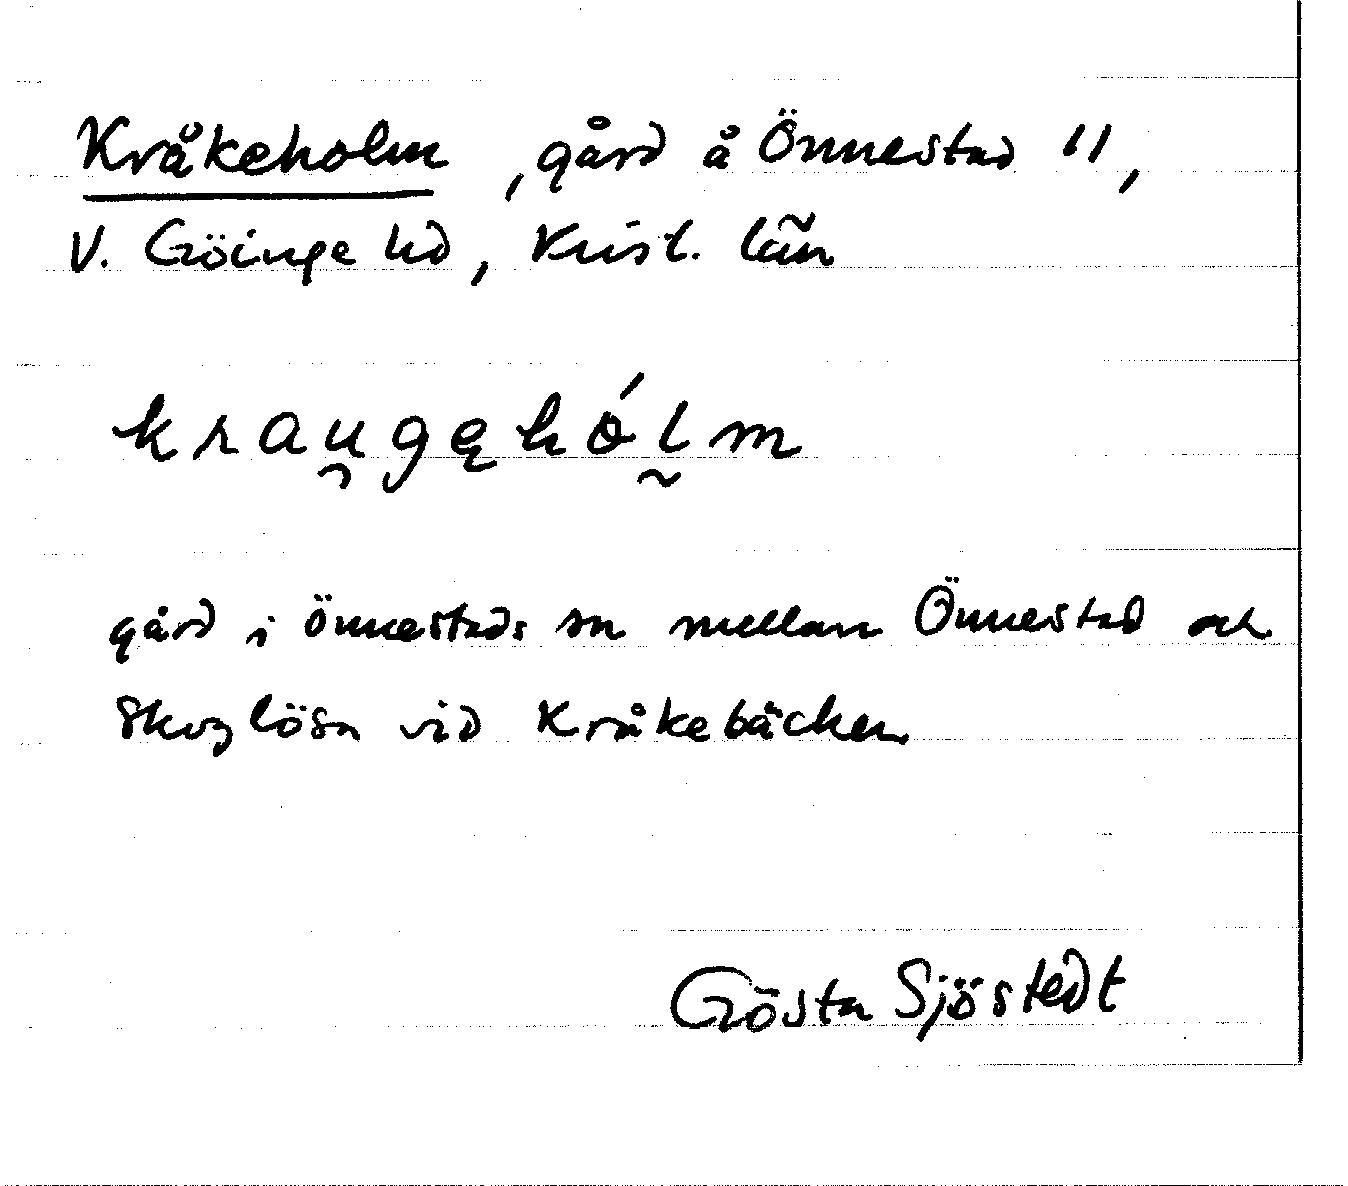 Kråkeholm, gård å Önnestad 11,
V. Göinge hd, Krist. län
krau̯gęhól̰m
gård i Önnestads sn mellan Önnestad och
Skoglösa vid Kråkebäcken
Gösta Sjöstedt